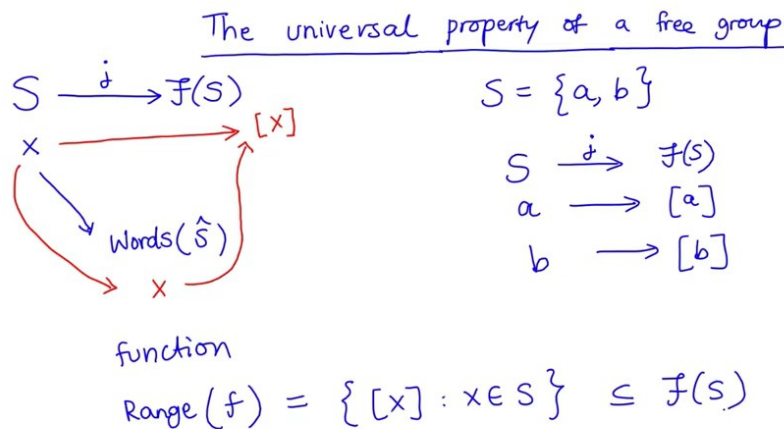 The universal property of a free group
S j→ F(S)
x → [x]
Words(Ŝ)
x
S = {a, b}
S j→ F(S)
a → [a]
b → [b]
function
Range(f) = { [x] : x ∈ S } ⊆ F(S)